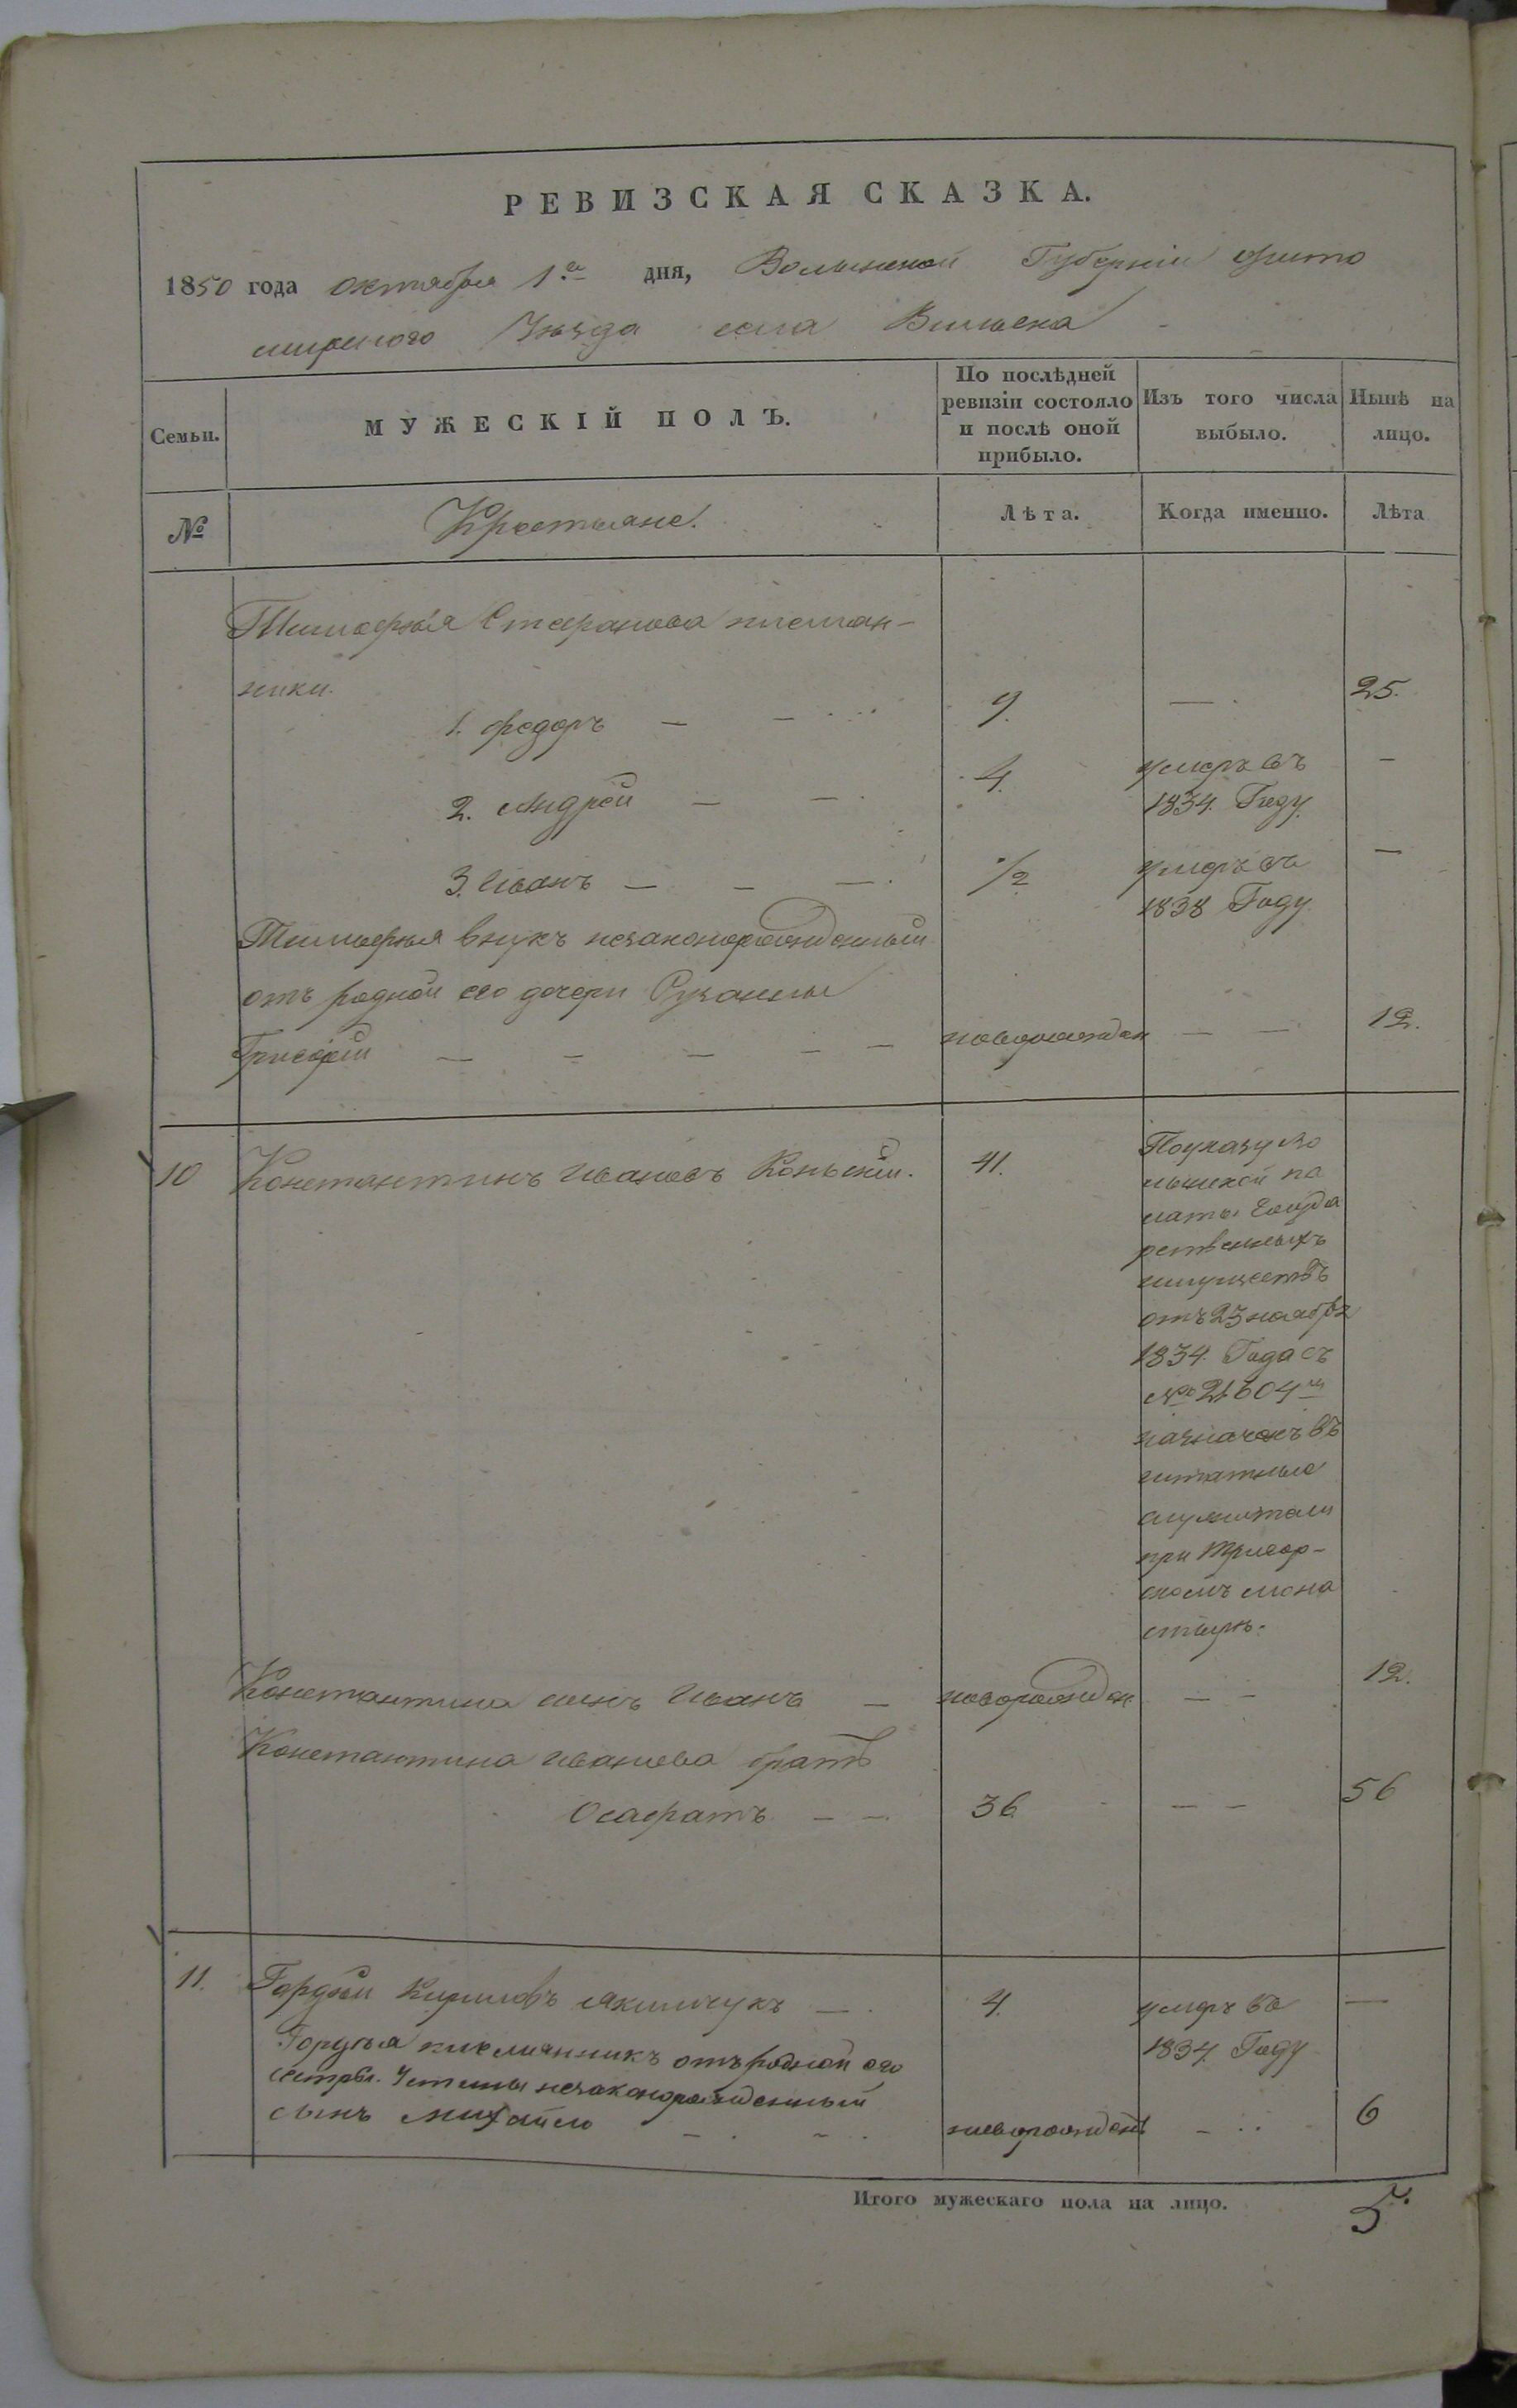 РЕВИЗСКАЯ СКАЗКА.
1850 года октября 1го дня, Волынской Губерніи Жито
мирскаго Уезда села Вильска
Семьи. МУЖЕСКІЙ ПОЛЪ. По послѣдней ревизіи состояло и послѣ оной прибыло. Изъ того числа выбыло. Нынѣ на лицо.
№ Крестьяне. Лѣта. Когда именно. Лѣта
Тимофѣя Степанова племян-
ники.
1. Федоръ — — 9. — 25.
2. Андрей — — 4. умеръ въ 1834. Году. —
3. Иванъ — — — 1/2 умеръ въ 1838 Году —
Тимофѣя внукъ незаконорожденный
отъ родной его дочери Сузанны
Григорій — — — — — новорожден — — 12.
10 Константинъ Ивановъ Коньскій. 41.
По указу Во
лынской па
латы Госуда
рственныхъ
имуществъ
отъ 23 ноября
1834. Года съ
№ 21604
назначенъ въ
штатные
служители
при Тригор-
скомъ мона
стыре.
Константина сынъ Иванъ — новорожден — — 12.
Константина Иванова братъ
Осафатъ — — 36 — — 56
11. Гордѣй Кириловъ Якимчукъ — 4. умеръ въ 1834. Году —
Гордѣя племянникъ отъ родной его
сестры Устины незаконорожденный
сынъ Михайло — — новорожденъ — 6
Итого мужескаго пола на лицо. 5.